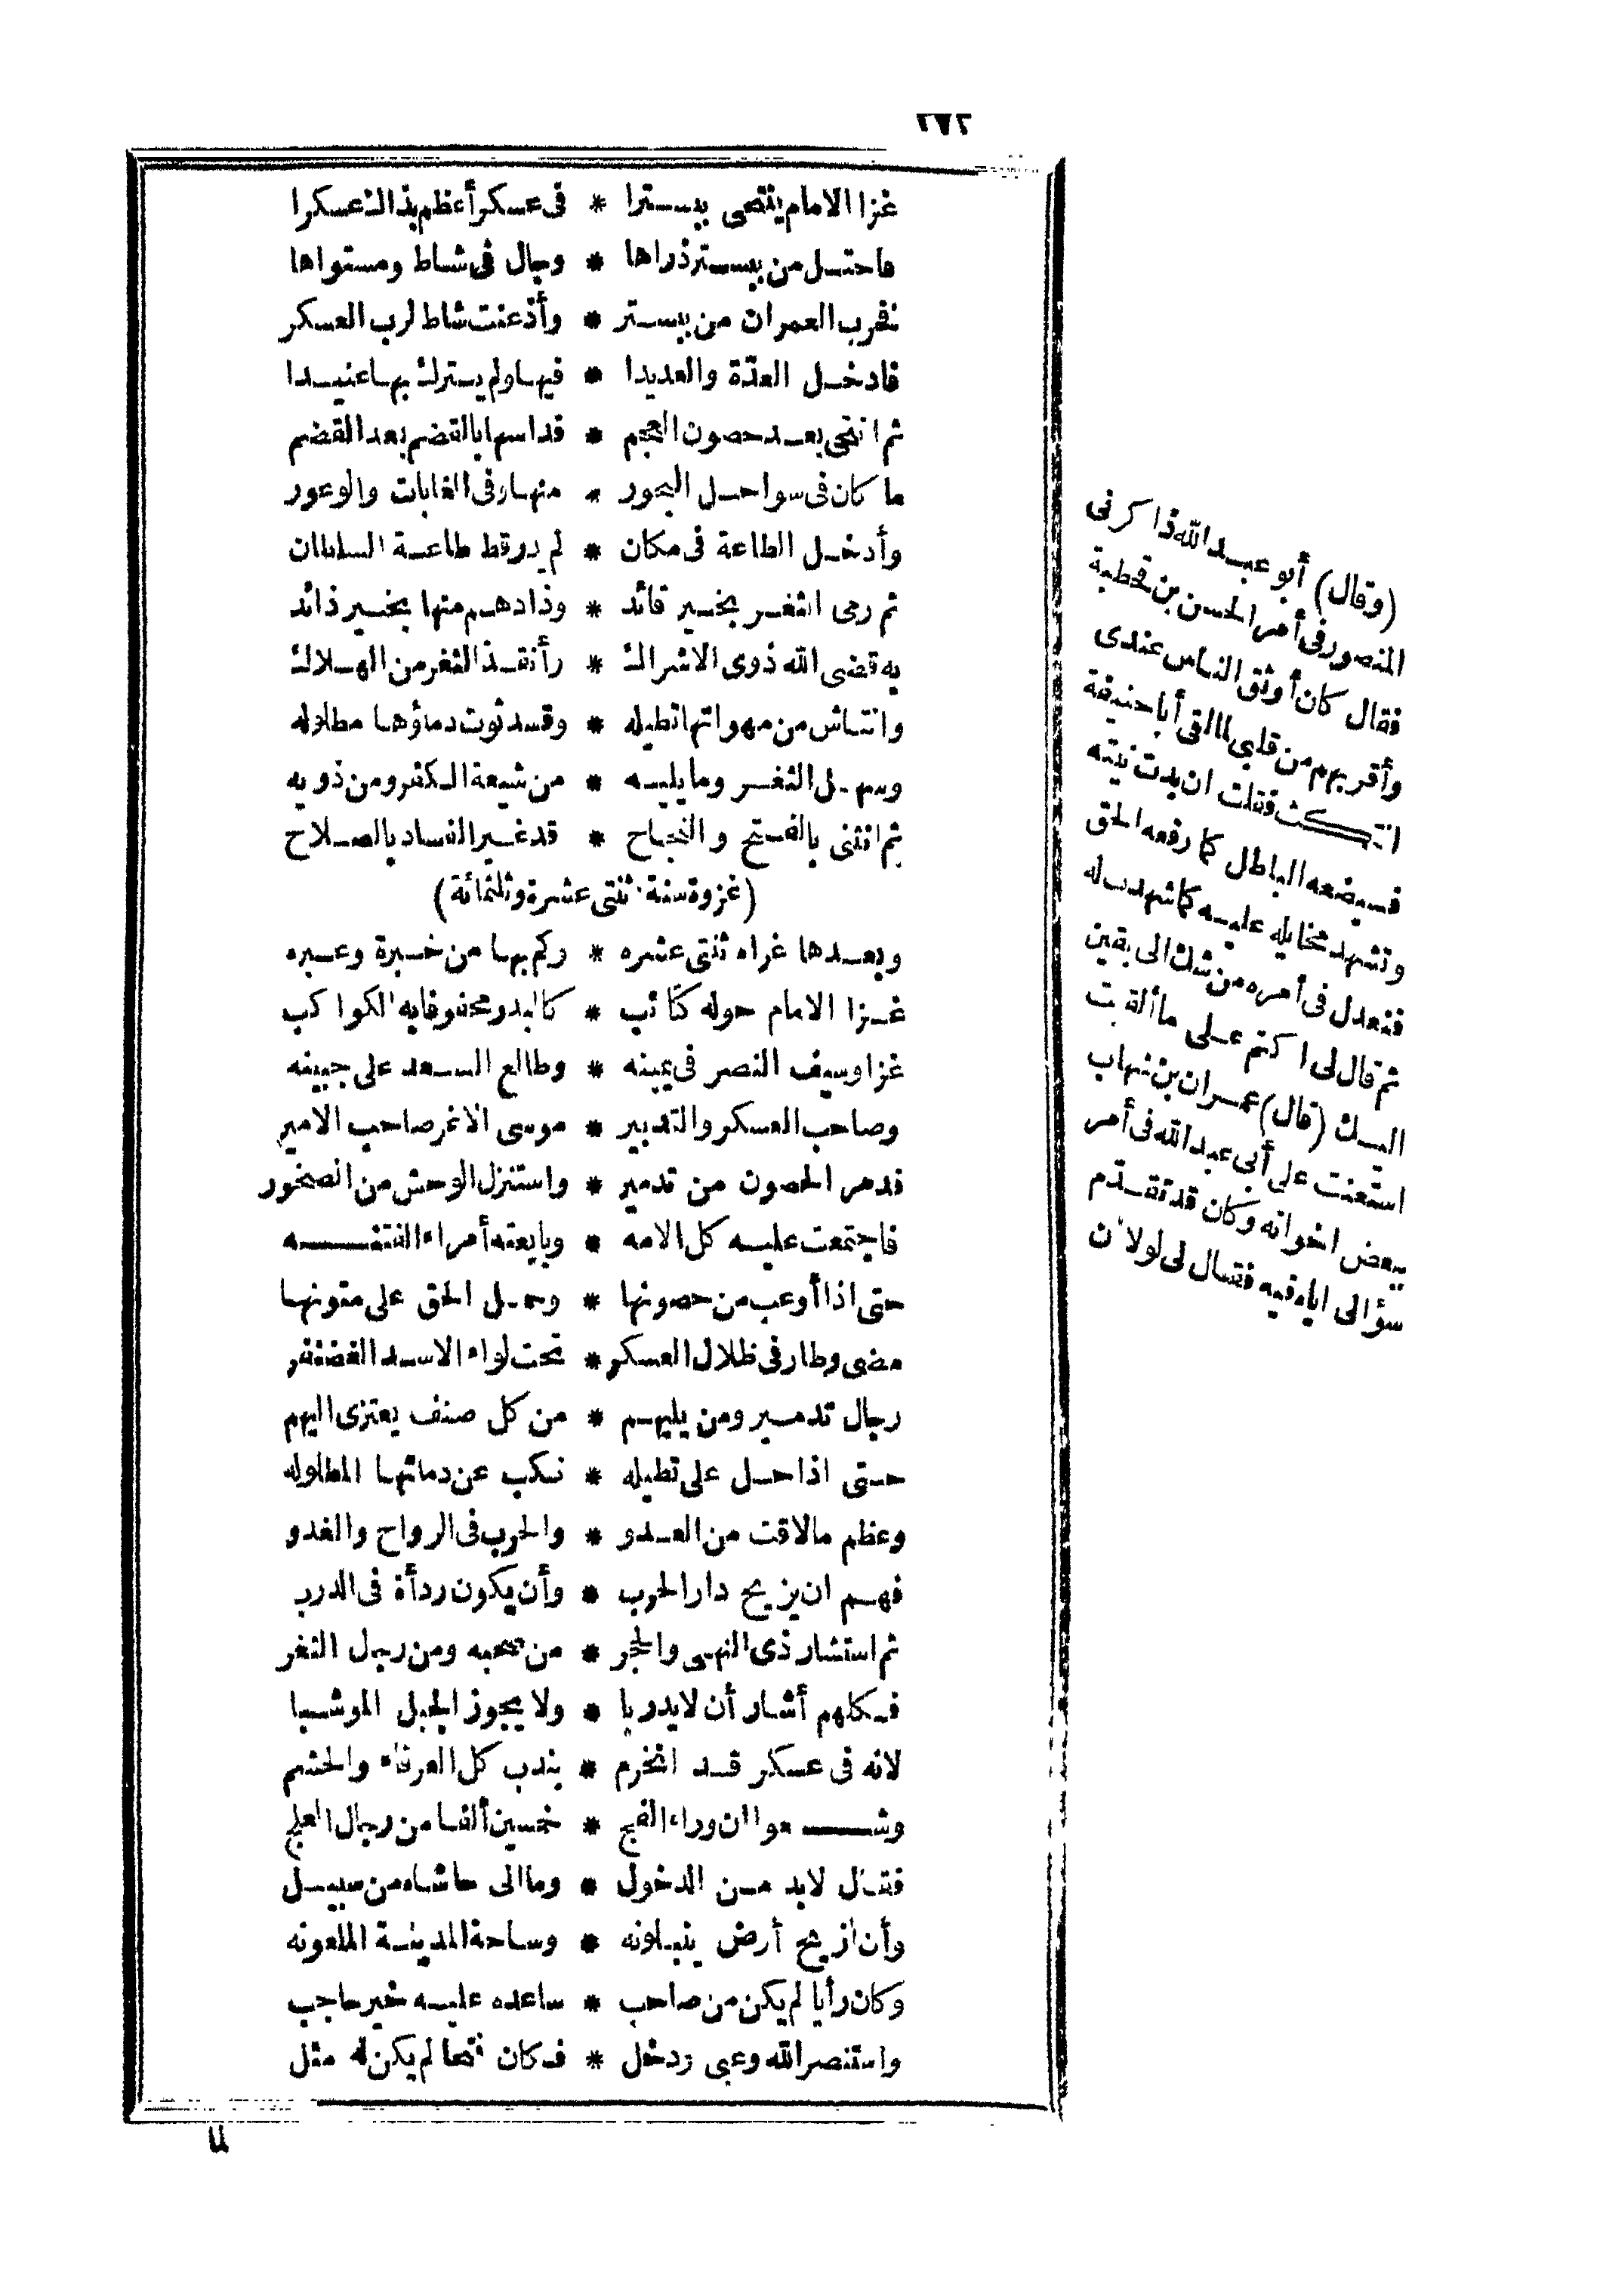 ٢٧٢
غزا الامام ينتحى ببسترا * فى عسكر أعظم بذاك عسكرا
فاحتل من ببستر ذراها * وجال فى شاط ومستواها
نخرب العمران من ببستر * وأذعنت شاط لرب العسكر
فادخل العدّة والعديدا * فيها ولم يترك بها عنيدا
ثم انتحى بعد حصون العجم * فداسها بالقضم بعد القضم
ما كان فى سواحل البحور * منها وفى الغابات والوعور
وأدخل الطاعة فى مكان * لم يدر قط طاعة السلطان
ثم رمى الثغر بخير قائد * وذادهم منها بخير ذائد
به قضى الله ذوى الاشراك * وأنقذ الثغر من الهلاك
وانتاش من مهواتها تطيله * وقد ثوت دماؤها مطلوله
وسهل الثغر وما يليه * من شيعة الكفر ومن ذويه
ثم انثنى بالفتح والنجاح * قد غير الفساد بالصلاح
(غزوة سنة ثنتى عشرة وثلثمائة)
وبعدها غزاه ثنتى عشره * وكم بها من خبرة وعبره
غزا الامام حوله كتائب * كالبدر محفوفا به الكواكب
غزا وسيف النصر فى يمينه * وطالع السعد على جبينه
وصاحب العسكر والتدبير * موسى الاغر صاحب الامير
فدمر الحصون من تدمير * واستنزل الوحش من الصخور
فاجتمعت عليه كل الامه * وبايعته أمراء الفتنه
حتى اذا أوعب من حصونها * وحمل الحق على متونها
مضى وطار فى ظلال العسكر * تحت لواء الاسد الغضنفر
رجال تدمير ومن يليهم * من كل صنف يعتزى اليهم
حتى اذا حل على تطيله * نكب عن دمائها المطلوله
وعظم مالاقت من العدو * والحرب فى الرواح والغدو
فهم ان يزيح دار الحرب * وأن يكون ردأة فى الدرب
ثم استشار ذى النهى والحجر * من صحبه ومن رجال الثغر
فكلهم أشار أن لا يدربا * ولا يجوز الجبل الموشبا
لانه فى عسكر قد انخرم * بندب كل العرفاء والحشم
وشنعوا ان وراء الفج * خمسين ألفا من رجال العلج
فقال لابد من الدخول * وما الى حاشاه من سبيل
وأن ازيح أرض بنبلونه * وساحة المدينة الملعونه
وكان رأيا لم يكن من صاحب * ساعده عليه خير حاجب
واستنصر الله وعبى ودخل * فكان فتحا لم يكن له مثل
لما
(وقال) أبو عبد الله ذاكرنى
المنصور فى أمر الحسن بن قحطبة
فقال كان أوثق الناس عندى
وأقربهم من قلبى لما لقى أبا حنيفة
انتكث فقلت ان بدت نيته
فسيضعه الباطل كما رفعه الحق
وتشهد مخايله عليه كما شهدت له
فتعدل فى أمره من شك الى يقين
ثم قال لى اكتم على ما ألقيت
اليك (قال) عمران بن شهاب
استعنت على أبى عبد الله فى أمر
ببعض اخوانه وكان قد تقدّم
سؤالى اياه فيه فقال لى لولا أن